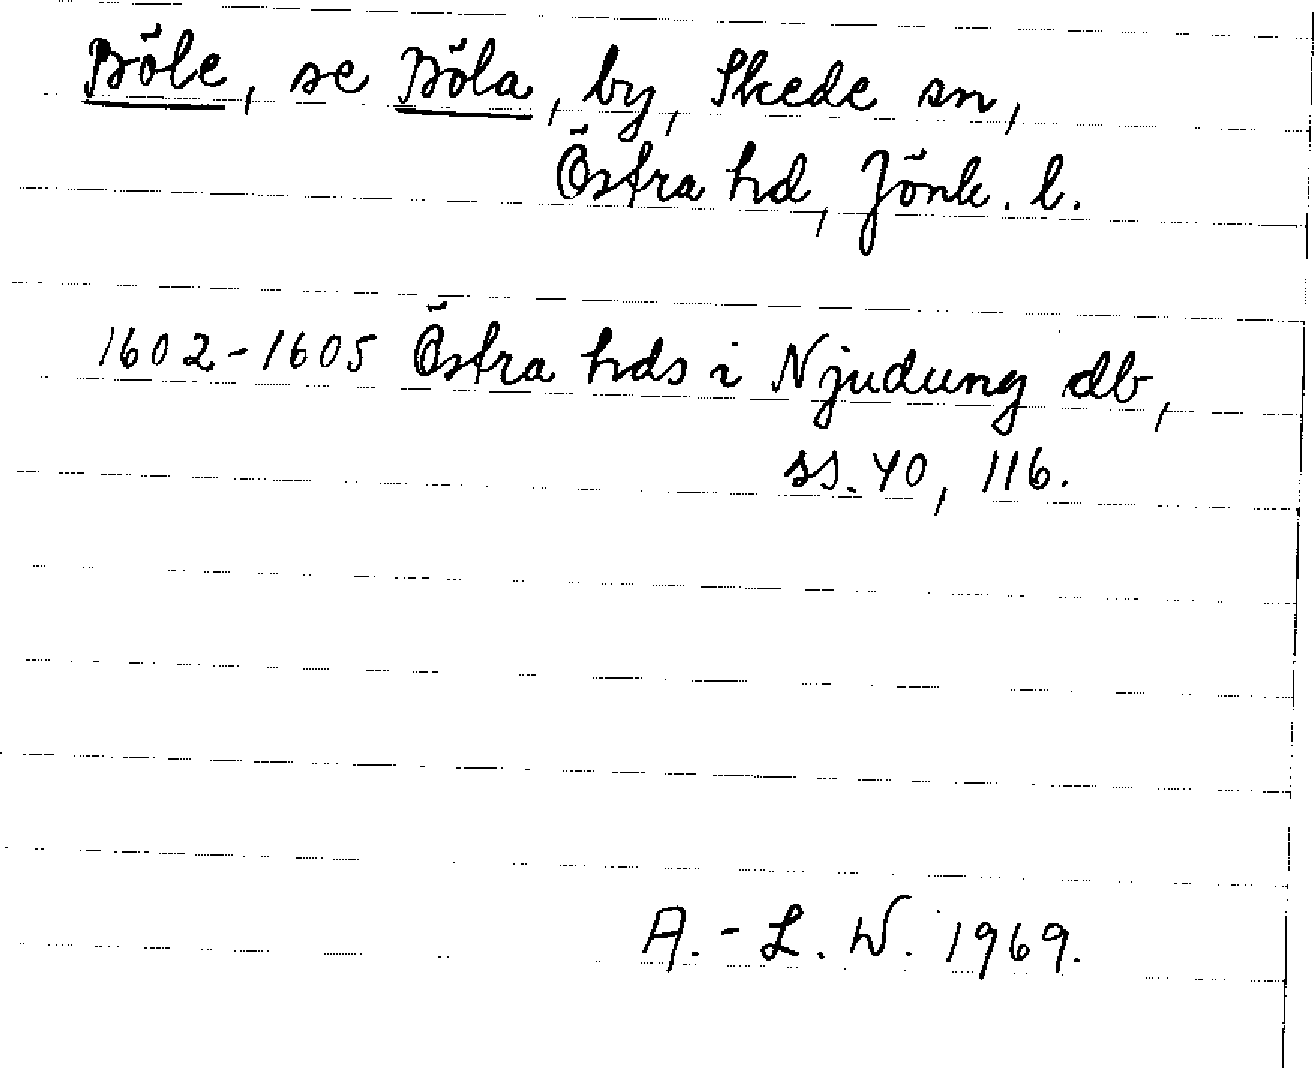 Böle, se Böla, by, Skede sn,
Östra hd, Jönk. l.
1602-1605 Östra hds i Njudung db,
ss. 40, 116.
A.-L. W. 1969.